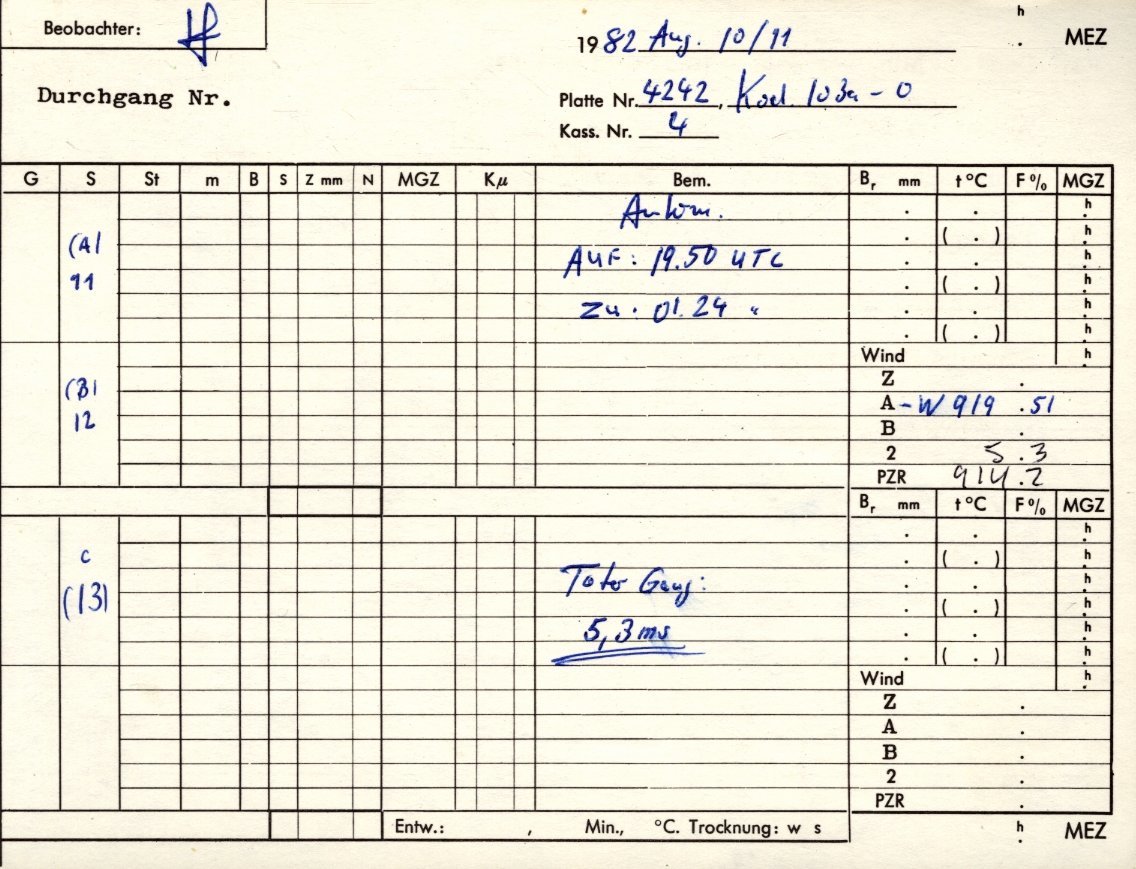 Beobachter:
h
1982 Aug. 10/11 . MEZ
Durchgang Nr.
Platte Nr. 4242, Kod. 103a-O
Kass. Nr. 4
G S St m B S Z mm N MGZ Kμ Bem. Br mm t °C F % MGZ
Autom. . . h
(A) . ( . ) h
AUF: 19.50 UTC . . h
11 . ( . ) h
Zu. 01.24 " . . h
. ( . ) h
Wind h
(B) Z .
12 A - W 919 .51
B .
2 5.3
PZR 914.2
Br mm t °C F % MGZ
. . h
c . ( . ) h
Toter Gang: . . h
(13) . ( . ) h
5,3 ms . . h
. ( . ) h
Wind h
Z .
A .
B .
2 .
PZR .
Entw.: , Min., °C. Trocknung: w s h MEZ